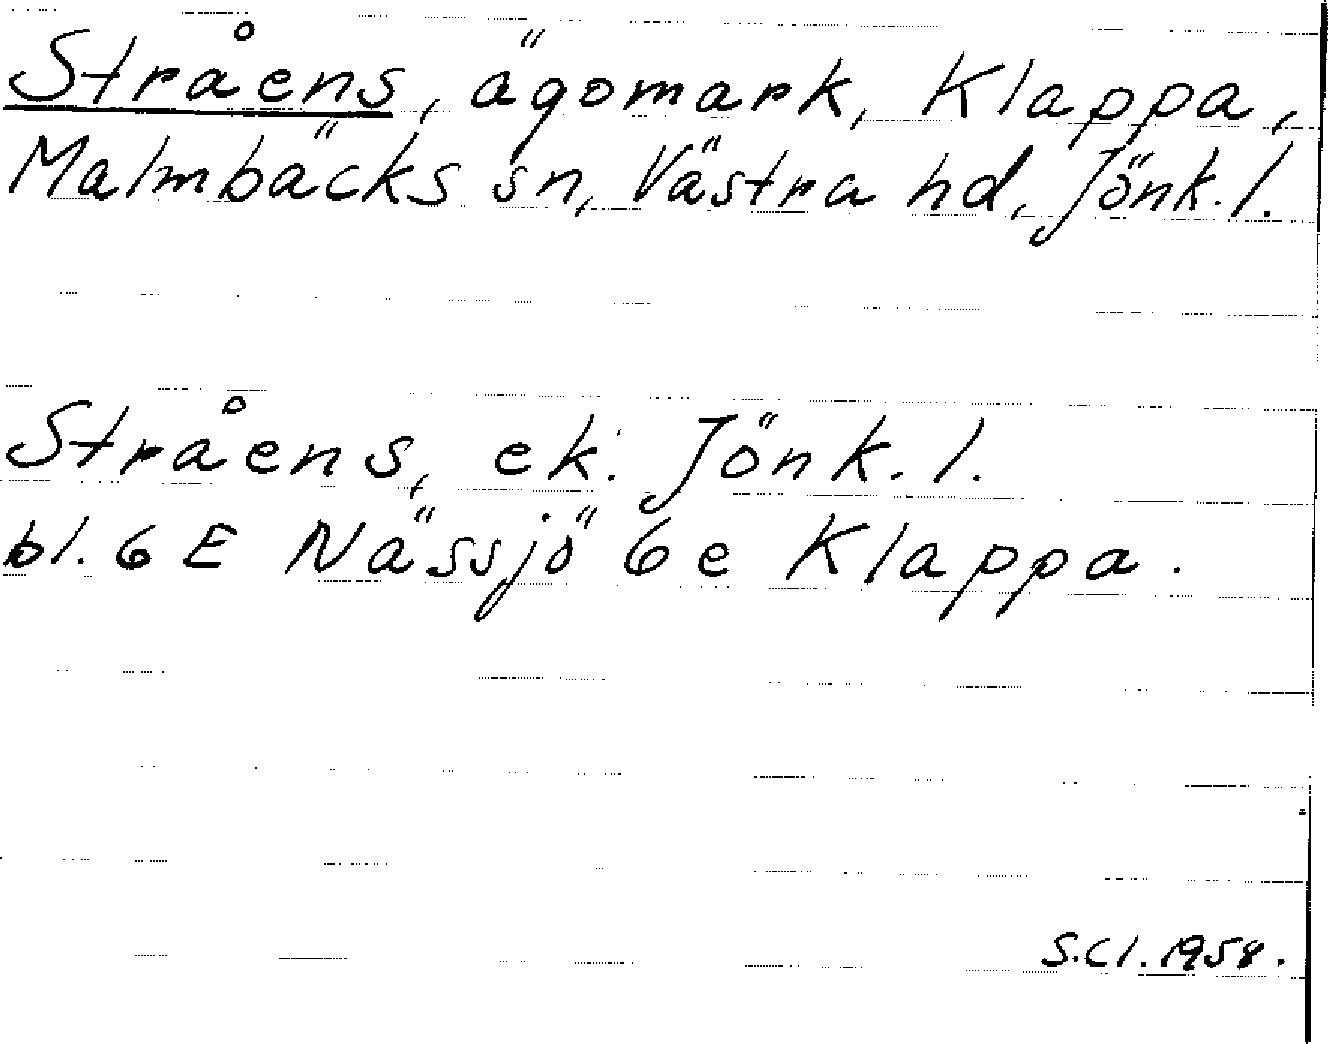 Stråens, ägomark, Klappa,
Malmbäcks sn, Västra hd, Jönk. l.
Stråens, ek. Jönk. l.
bl. 6 E Nässjö 6 e Klappa.
S.Cl. 1958.